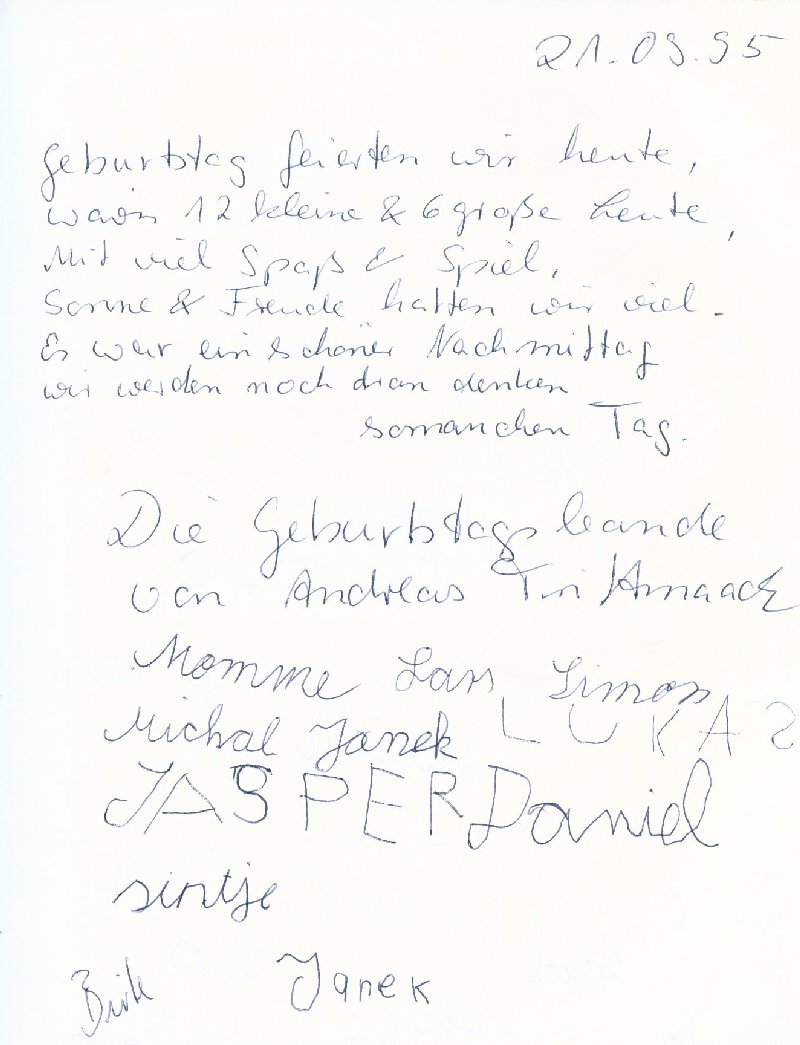 21.09.95
Geburtstag feierten wir heute,
warn 12 kleine & 6 große Leute,
Mit viel Spaß & Spiel,
Sonne & Freude hatten wir viel.
Es war ein schöner Nachmittag
wir werden noch dran denken
somanchen Tag.
Die Geburtstagsbande
von Andreas Tin
Momme Lars Simon
Michal Janek LUKAS
JASPER Daniel
sintje
Birk Janek